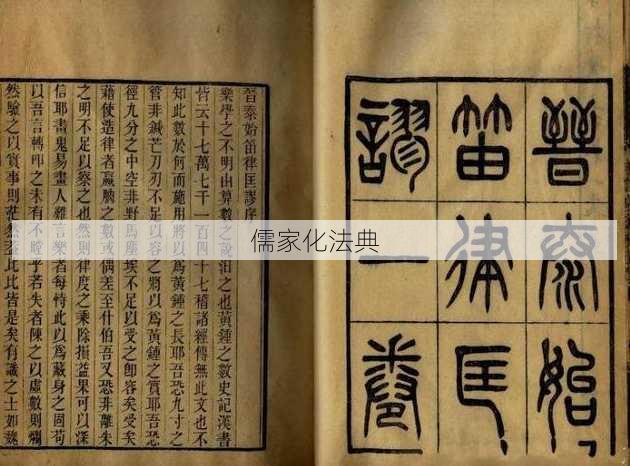 晉泰始
笛律匡
謬一卷
儒家化法典
晉泰始笛律匡謬序
樂學之不明由算數之說汨之也黃鍾之數史記漢書
皆云十七萬七千一百四十七稽諸經傳無此文也不
知此數於何而施用將以爲黃鍾之長耶吾恐九寸之
管非鍼芒刀刃不足以容之將以爲黃鍾之實耶吾恐
徑九分之中空非野馬塵埃不足以受之卽容矣受矣
藉使造律者贏朒之數偶差至什伯吾又恐非離朱
之明不足以察之也然則律度之乘除損益果可以深
信耶畫鬼易畫人難言樂者每恃此以爲藏身之固苟
以吾言轉叩之未有不瞠乎若失者陳之以虛數則爛
然驗之以實事則茫然蓋比比皆是矣有識之士如魏